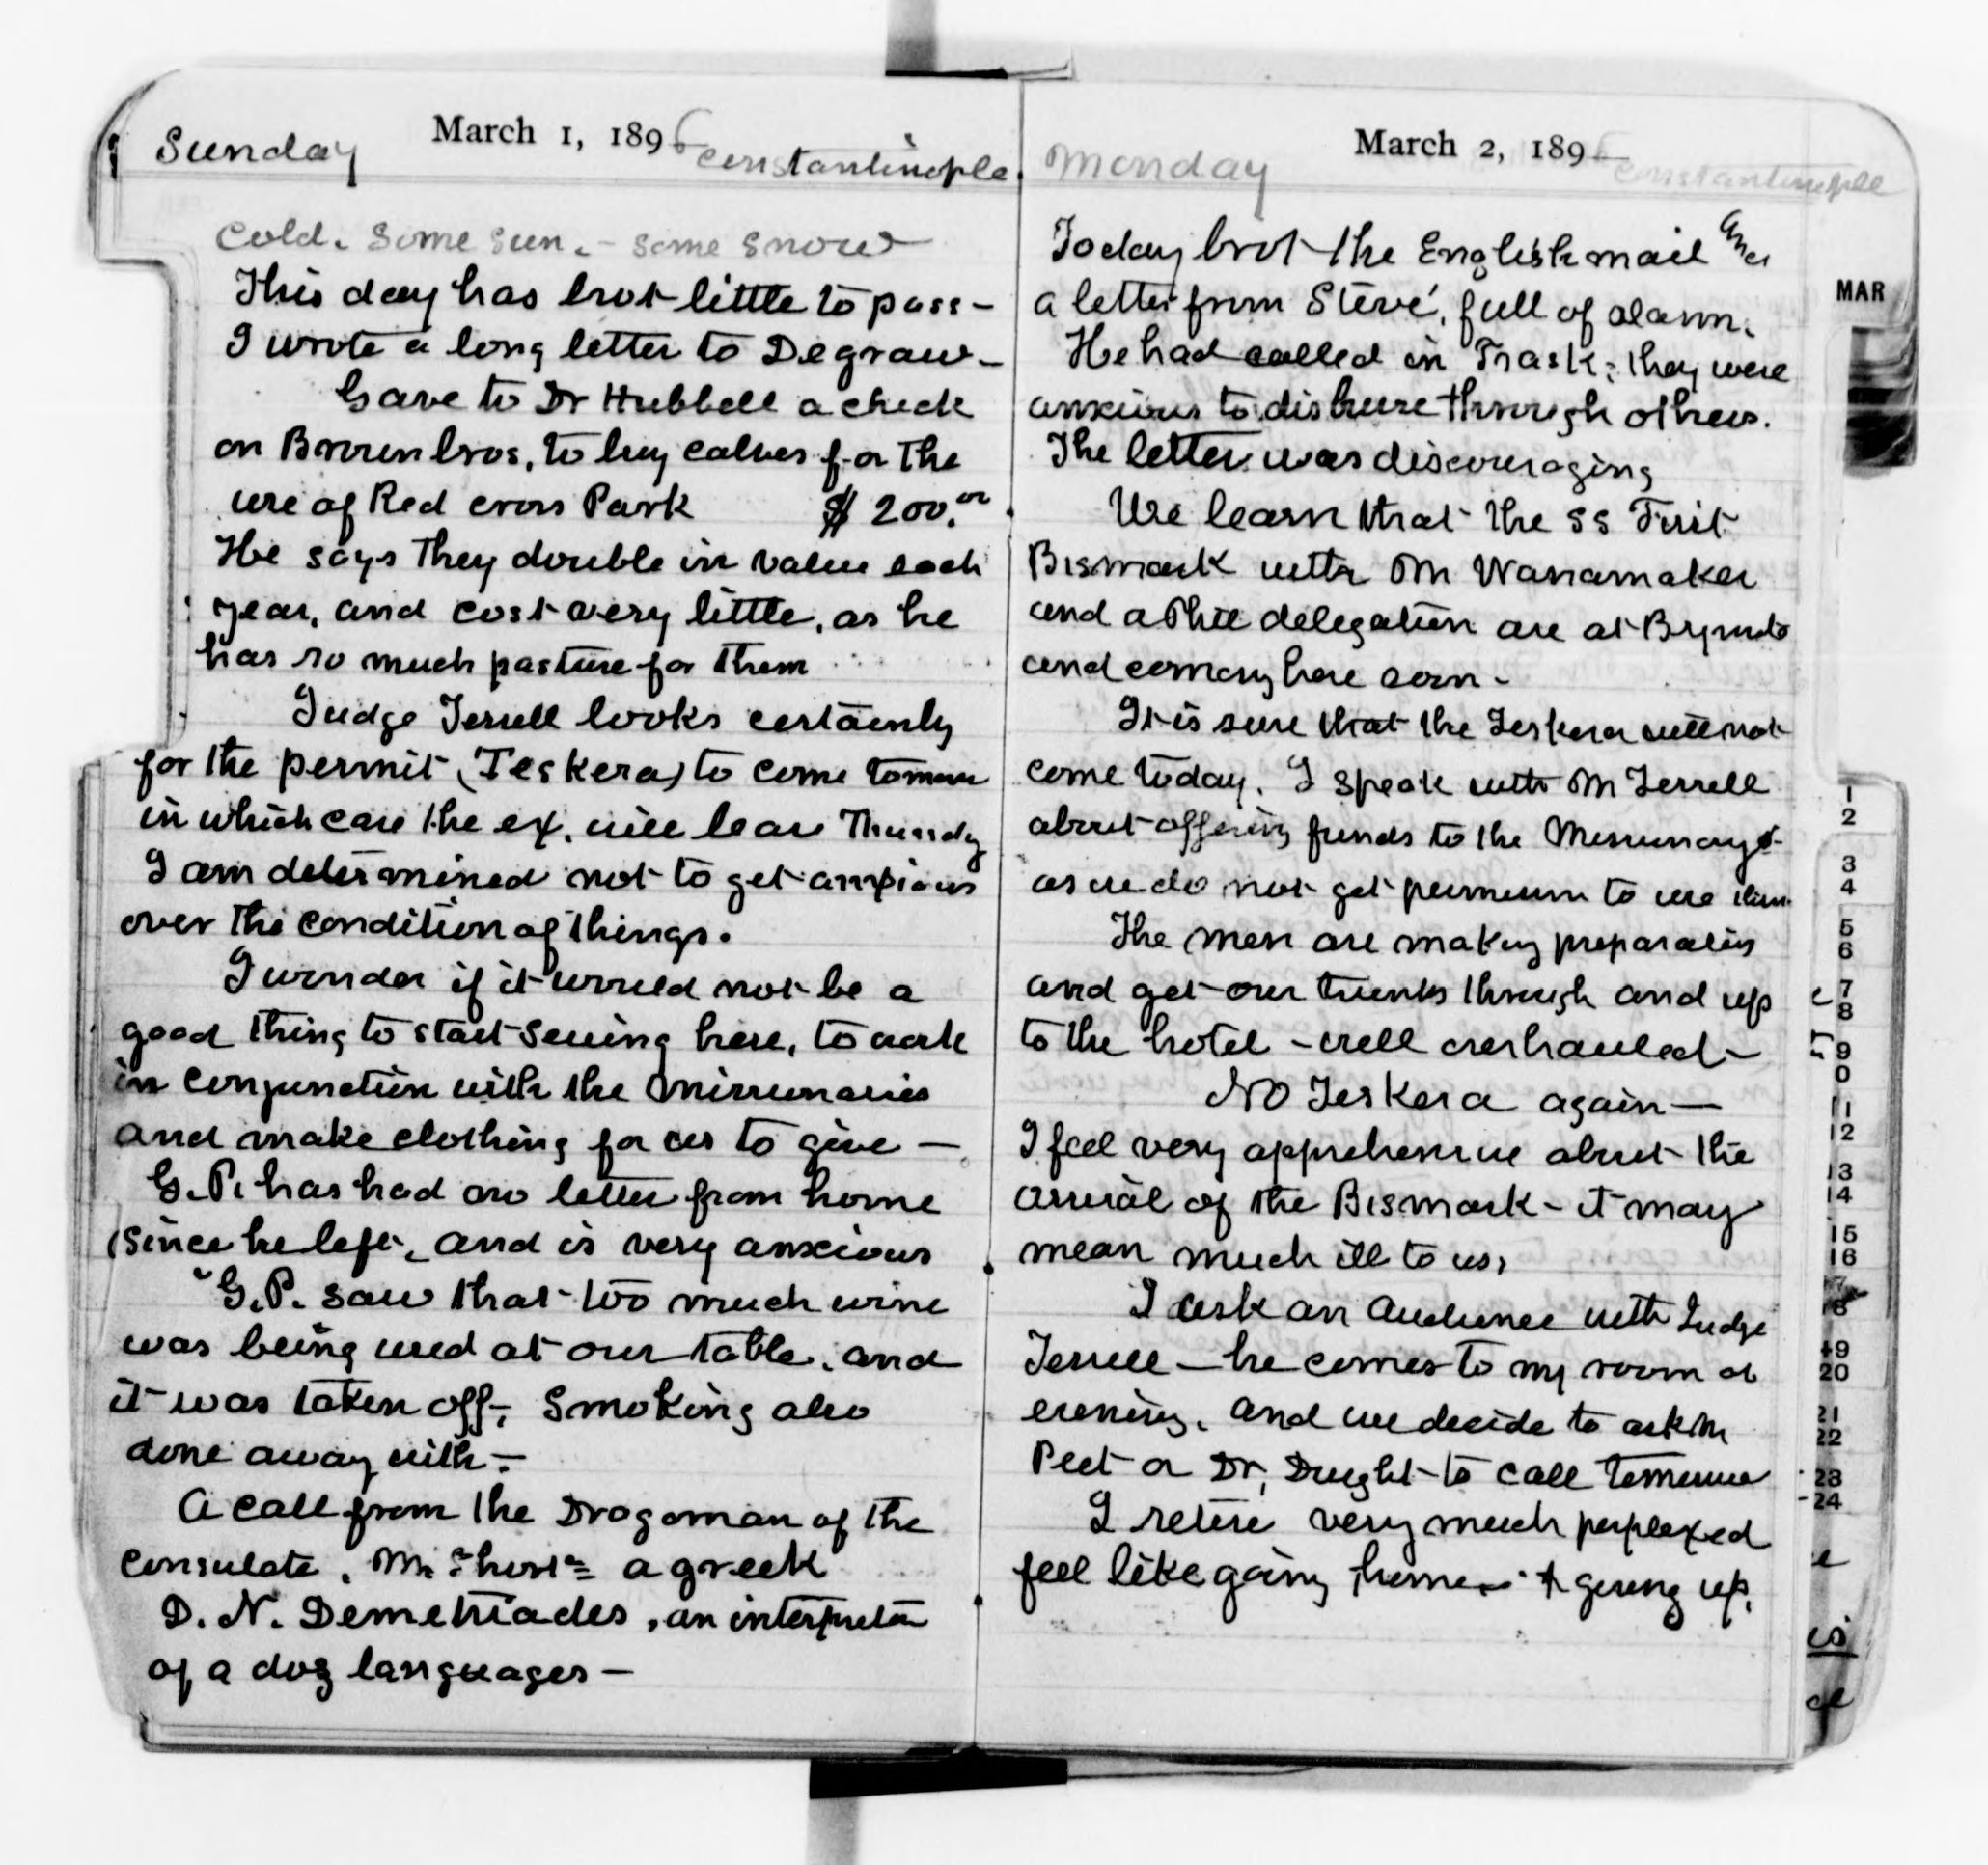 Sunday March 1, 1896 Constantinople
Cold. Some sun. - some snow
This day has brot little to pass -
I wrote a long letter to Degraw -
Gave to Dr Hubbell a check
on Brown bros, to buy calves for the
use of Red cross Park $200.00
He says they double in value each
year, and cost very little, as he
has so much pasture for them
Judge Terrell looks certainly
for the permit (Teskera) to come
in which case the ex. will leave Thursdy
I am determined not to get anxious
over the condition of things.
I wonder if it would not be a
good thing to start sewing here, to work
in conjunction with the missionaries
and make clothing for us to give -
G.P. has had no letter from home
since he left, and is very anxious
G.P. saw that too much wine
was being used at our table, and
it was taken off, Smoking also
done away with -
A call from the Dragoman of the
Consulate, Mr Short = a greek
D. N. Demetriades, an interpreter
of a doz languages -
Monday March 2, 189 Constantinople
Today brot the English mail and
a letter from Steve, full of alarm.
He had called in Trask; they were
anxious to disburse through others.
The letter was discouraging
We learn that the SS
Bismark with Mr Wanamaker
and a Phil delegation are at
and coming here soon -
It is sure that the Teskera will not
come today. I speak with Mr Terrell
about offering funds to the
as we do not get permission to use them
The men are making preparations
and get our trunks through and up
to the hotel - well overhauled -
No Teskera again -
I feel very apprehensive about the
arrival of the Bismark - it may
mean much ill to us,
I ask an Audience with Judge
Terrell - he comes to my room at
evening, and we decide to ask Mr
Peet or Dr, Dwight to call
I retire very much perplexed
feel like going home - & giving up.
MAR
1
2
3
4
5
6
7
8
9
0
11
12
13
14
15
16
18
19
20
21
22
23
24